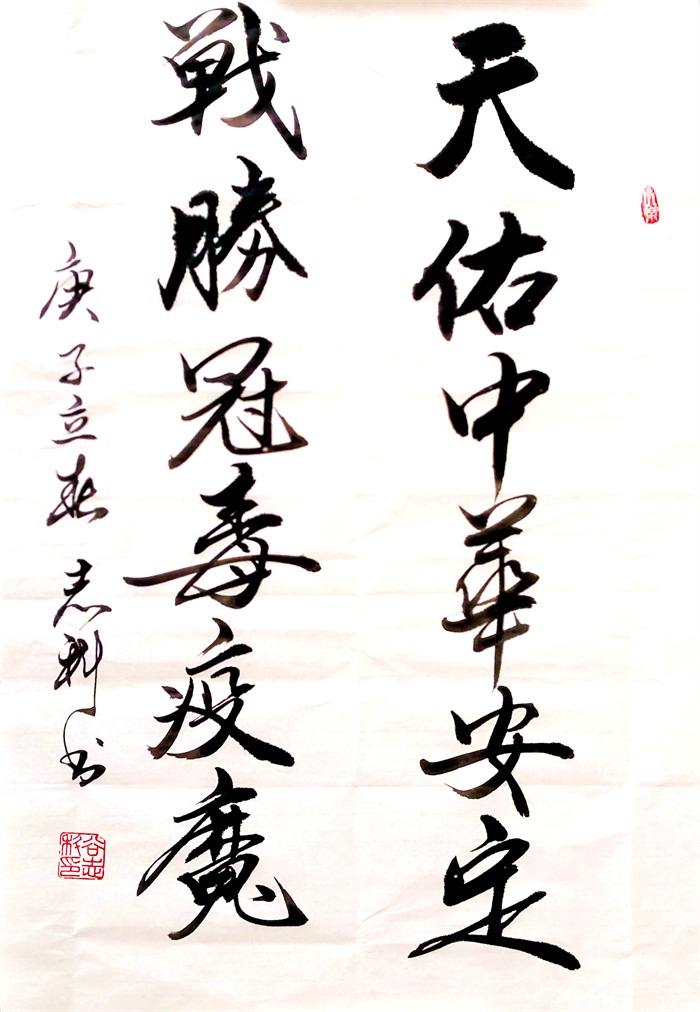 天佑中華安定
戦勝冠毒疫魔
庚子立春 志科书
谷志科印